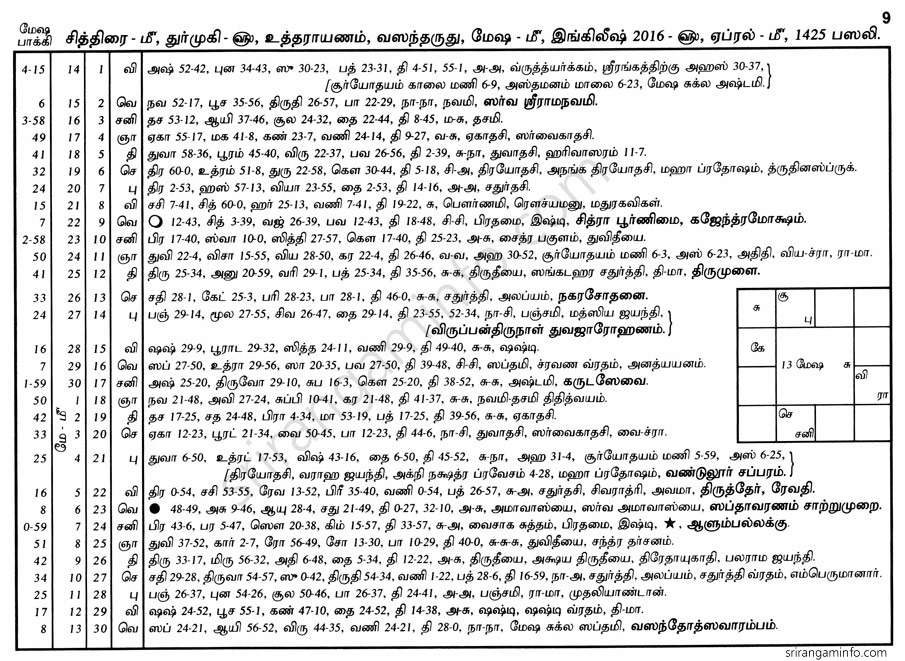 9
மேஷ பாக்கி
சித்திரை - மீ, துர்முகி - ௵, உத்தராயணம், வஸந்தருது, மேஷ - மீ, இங்கிலீஷ் 2016 - ௵, ஏப்ரல் - மீ, 1425 பஸலி.
4-15 14 1 வி அஷ் 52-42, புன 34-43, ஸு 30-23, பத் 23-31, தி 4-51, 55-1, அ-அ, வ்ருத்த்யர்க்கம், ஸ்ரீரங்கத்திற்கு அஹஸ் 30-37,
[சூர்யோதயம் காலை மணி 6-9, அஸ்தமனம் மாலை 6-23, மேஷ சுக்ல அஷ்டமி.
6 15 2 வெ நவ 52-17, பூச 35-56, திருதி 26-57, பா 22-29, நா-நா, நவமி, ஸர்வ ஸ்ரீராமநவமி.
3-58 16 3 சனி தச 53-12, ஆயி 37-46, சூல 24-32, தை 22-44, தி 8-45, ம-சு, தசமி.
49 17 4 ஞா ஏகா 55-17, மக 41-8, கண் 23-7, வணி 24-14, தி 9-27, வ-சு, ஏகாதசி, ஸர்வைகாதசி.
41 18 5 தி துவா 58-36, பூரம் 45-40, விரு 22-37, பவ 26-56, தி 2-39, சு-நா, துவாதசி, ஹரிவாஸரம் 11-7.
32 19 6 செ திர 60-0, உத்ரம் 51-8, துரு 22-58, கௌ 30-44, தி 5-18, சி-அ, திரயோதசி, அநங்க திரயோதசி, மஹா ப்ரதோஷம், த்ருதினஸ்ப்ருக்.
24 20 7 பு திர 2-53, ஹஸ் 57-13, வியா 23-55, தை 2-53, தி 14-16, அ-அ, சதுர்தசி.
15 21 8 வி சசி 7-41, சித் 60-0, ஹர் 25-13, வணி 7-41, தி 19-22, சு, பௌர்ணமி, ரௌச்யமனு, மதுரகவிகள்.
7 22 9 வெ ○ 12-43, சித் 3-39, வஜ் 26-39, பவ 12-43, தி 18-48, சி-சி, பிரதமை, இஷ்டி, சித்ரா பூர்ணிமை, கஜேந்த்ரமோக்ஷம்.
2-58 23 10 சனி பிர 17-40, ஸ்வா 10-0, ஸித்தி 27-57, கௌ 17-40, தி 25-23, அ-சு, சைத்ர பகுளம், துவிதீயை.
50 24 11 ஞா துவி 22-4, விசா 15-55, விய 28-50, கர 22-4, தி 26-46, வ-வ, அஹ 30-52, சூர்யோதயம் மணி 6-3, அஸ் 6-23, அதிதி, விய-ச்ரா, ரா-மா.
41 25 12 தி திரு 25-34, அனு 20-59, வரி 29-1, பத் 25-34, தி 35-56, சு-சு, திருதீயை, ஸங்கடஹர சதுர்த்தி, தி-மா, திருமுளை.
33 26 13 செ சதி 28-1, கேட் 25-3, பரி 28-23, பா 28-1, தி 46-0, சு-சு, சதுர்த்தி, அலப்யம், நகரசோதனை.
24 27 14 பு பஞ் 29-14, மூல 27-55, சிவ 26-47, தை 29-14, தி 23-55, 52-34, நா-சி, பஞ்சமி, மத்ஸிய ஜயந்தி,
[விருப்பன்திருநாள் துவஜாரோஹணம்.
16 28 15 வி ஷஷ் 29-9, பூராட 29-32, ஸித்த 24-11, வணி 29-9, தி 49-40, சு-சு, ஷஷ்டி.
7 29 16 வெ ஸப் 27-50, உத்ரா 29-56, ஸா 20-35, பவ 27-50, தி 39-48, சி-சி, ஸப்தமி, ச்ரவண வ்ரதம், அனத்யயனம்.
1-59 30 17 சனி அஷ் 25-20, திருவோ 29-10, சுப 16-3, கௌ 25-20, தி 38-52, சு-சு, அஷ்டமி, கருடஸேவை.
50 1 18 ஞா நவ 21-48, அவி 27-24, சுப்பி 10-41, கர 21-48, தி 41-37, சு-சு, நவமி-தசமி திதித்வயம்.
மே - மீ
42 2 19 தி தச 17-25, சத 24-48, பிரா 4-34, மா 53-19, பத் 17-25, தி 39-56, சு-சு, ஏகாதசி.
33 3 20 செ ஏகா 12-23, பூரட் 21-34, வை 50-45, பா 12-23, தி 44-6, நா-சி, துவாதசி, ஸர்வைகாதசி, வை-ச்ரா.
25 4 21 பு துவா 6-50, உத்ரட் 17-53, விஷ் 43-16, தை 6-50, தி 45-52, சு-நா, அஹ 31-4, சூர்யோதயம் மணி 5-59, அஸ் 6-25,
[திரயோதசி, வராஹ ஜயந்தி, அக்நி நக்ஷத்ர ப்ரவேசம் 4-28, மஹா ப்ரதோஷம், வண்டுலூர் சப்பரம்.
16 5 22 வி திர 0-54, சசி 53-55, ரேவ 13-52, பிரீ 35-40, வணி 0-54, பத் 26-57, சு-அ, சதுர்தசி, சிவராத்ரி, அவமா, திருத்தேர், ரேவதி.
8 6 23 வெ ● 48-49, அசு 9-46, ஆயு 28-4, சது 21-49, தி 0-27, 32-10, அ-சு, அமாவாஸ்யை, ஸர்வ அமாவாஸ்யை, ஸப்தாவரணம் சாற்றுமுறை.
0-59 7 24 சனி பிர 43-6, பர 5-47, ஸௌ 20-38, கிம் 15-57, தி 33-57, சு-அ, வைசாக சுத்தம், பிரதமை, இஷ்டி, ★, ஆளும்பல்லக்கு.
51 8 25 ஞா துவி 37-52, கார் 2-7, ரோ 56-49, சோ 13-30, பா 10-29, தி 40-0, சு-சு-சு, துவிதீயை, சந்த்ர தர்சனம்.
42 9 26 தி திரு 33-17, மிரு 56-32, அதி 6-48, தை 5-34, தி 12-22, அ-சு, திருதீயை, அக்ஷய திருதீயை, திரேதாயுகாதி, பலராம ஜயந்தி.
34 10 27 செ சதி 29-28, திருவா 54-57, ஸு 0-42, திருதி 54-34, வணி 1-22, பத் 28-6, தி 16-59, நா-அ, சதுர்த்தி, அலப்யம், சதுர்த்தி வ்ரதம், எம்பெருமானார்.
25 11 28 பு பஞ் 26-37, புன 54-26, சூல 50-46, பா 26-37, தி 24-41, அ-அ, பஞ்சமி, ரா-மா, முதலியாண்டான்.
17 12 29 வி ஷஷ் 24-52, பூச 55-1, கண் 47-10, தை 24-52, தி 14-38, அ-சு, ஷஷ்டி, ஷஷ்டி வ்ரதம், தி-மா.
8 13 30 வெ ஸப் 24-21, ஆயி 56-52, விரு 44-35, வணி 24-21, தி 28-0, நா-நா, மேஷ சுக்ல ஸப்தமி, வஸந்தோத்ஸவாரம்பம்.
சு சூ பு
கே 13 மேஷ சு வி
ரா
செ சனி
srirangaminfo.com
srirangaminfo.com